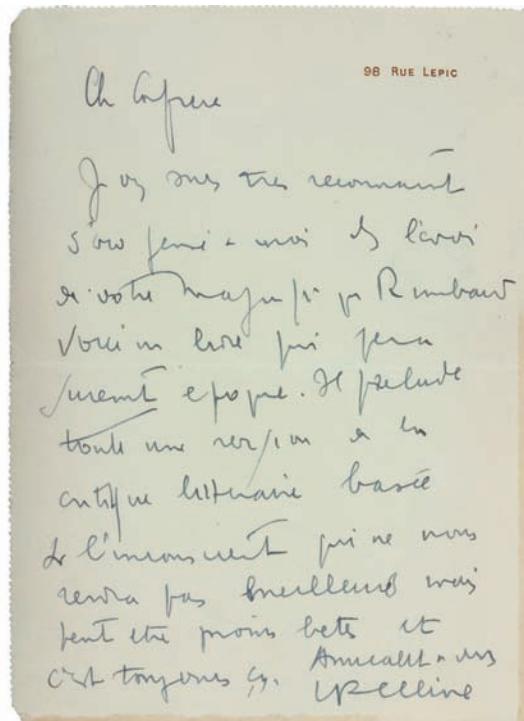 98 RUE LEPIC
Ch Confrere
Je vs suis tres reconnaissant
d'avoir pensé a moi ds l'envoi
de votre magnifique Rimbaud
Voici un livre qui fera
surement epoque. Il prelude
toute une revision de la
critique litteraire basée
sr l'inconscient qui ne nous
rendra pas meilleurs mais
peut etre moins betes et
c'est toujours ça. Amicalt a vs
LFCeline